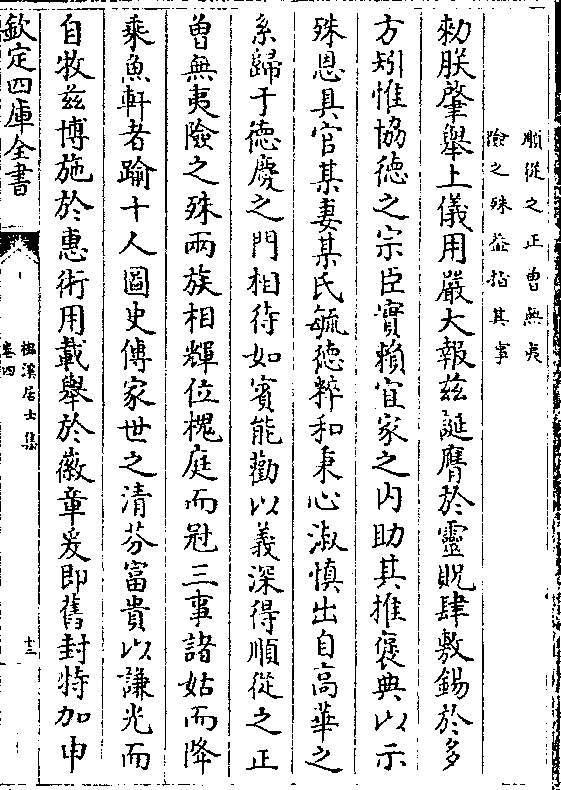 順從之正曽無夷
險之殊蓋指其事
勅朕肇舉上儀用嚴大報兹誕膺於靈貺肆敷錫於多
方矧惟協德之宗臣實賴宜家之内助其推褒典以示
殊恩具官某妻某氏毓德粹和秉心淑慎出自高華之
系歸于德慶之門相待如賓能勸以義深得順從之正
曽無夷險之殊兩族相輝位槐庭而冠三事諸姑而降
乘魚軒者踰十人圖史傳家世之清芬富貴以謙光而
自牧兹博施於惠術用載舉於徽章爰即舊封特加申
欽定四庫全書
栂溪居士集
卷四
十三